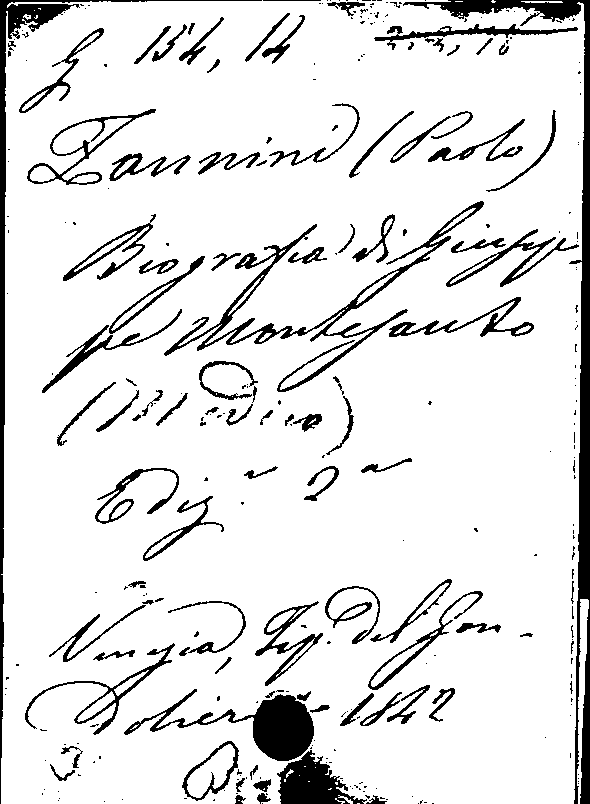 G. 154, 14
Zannini (Paolo)
Biografia di Giusep-
pe Montesanto
(Medico)
Ediz.ᵃ 2ᵃ
Venezia, Tip. del Gon-
doliere 1842